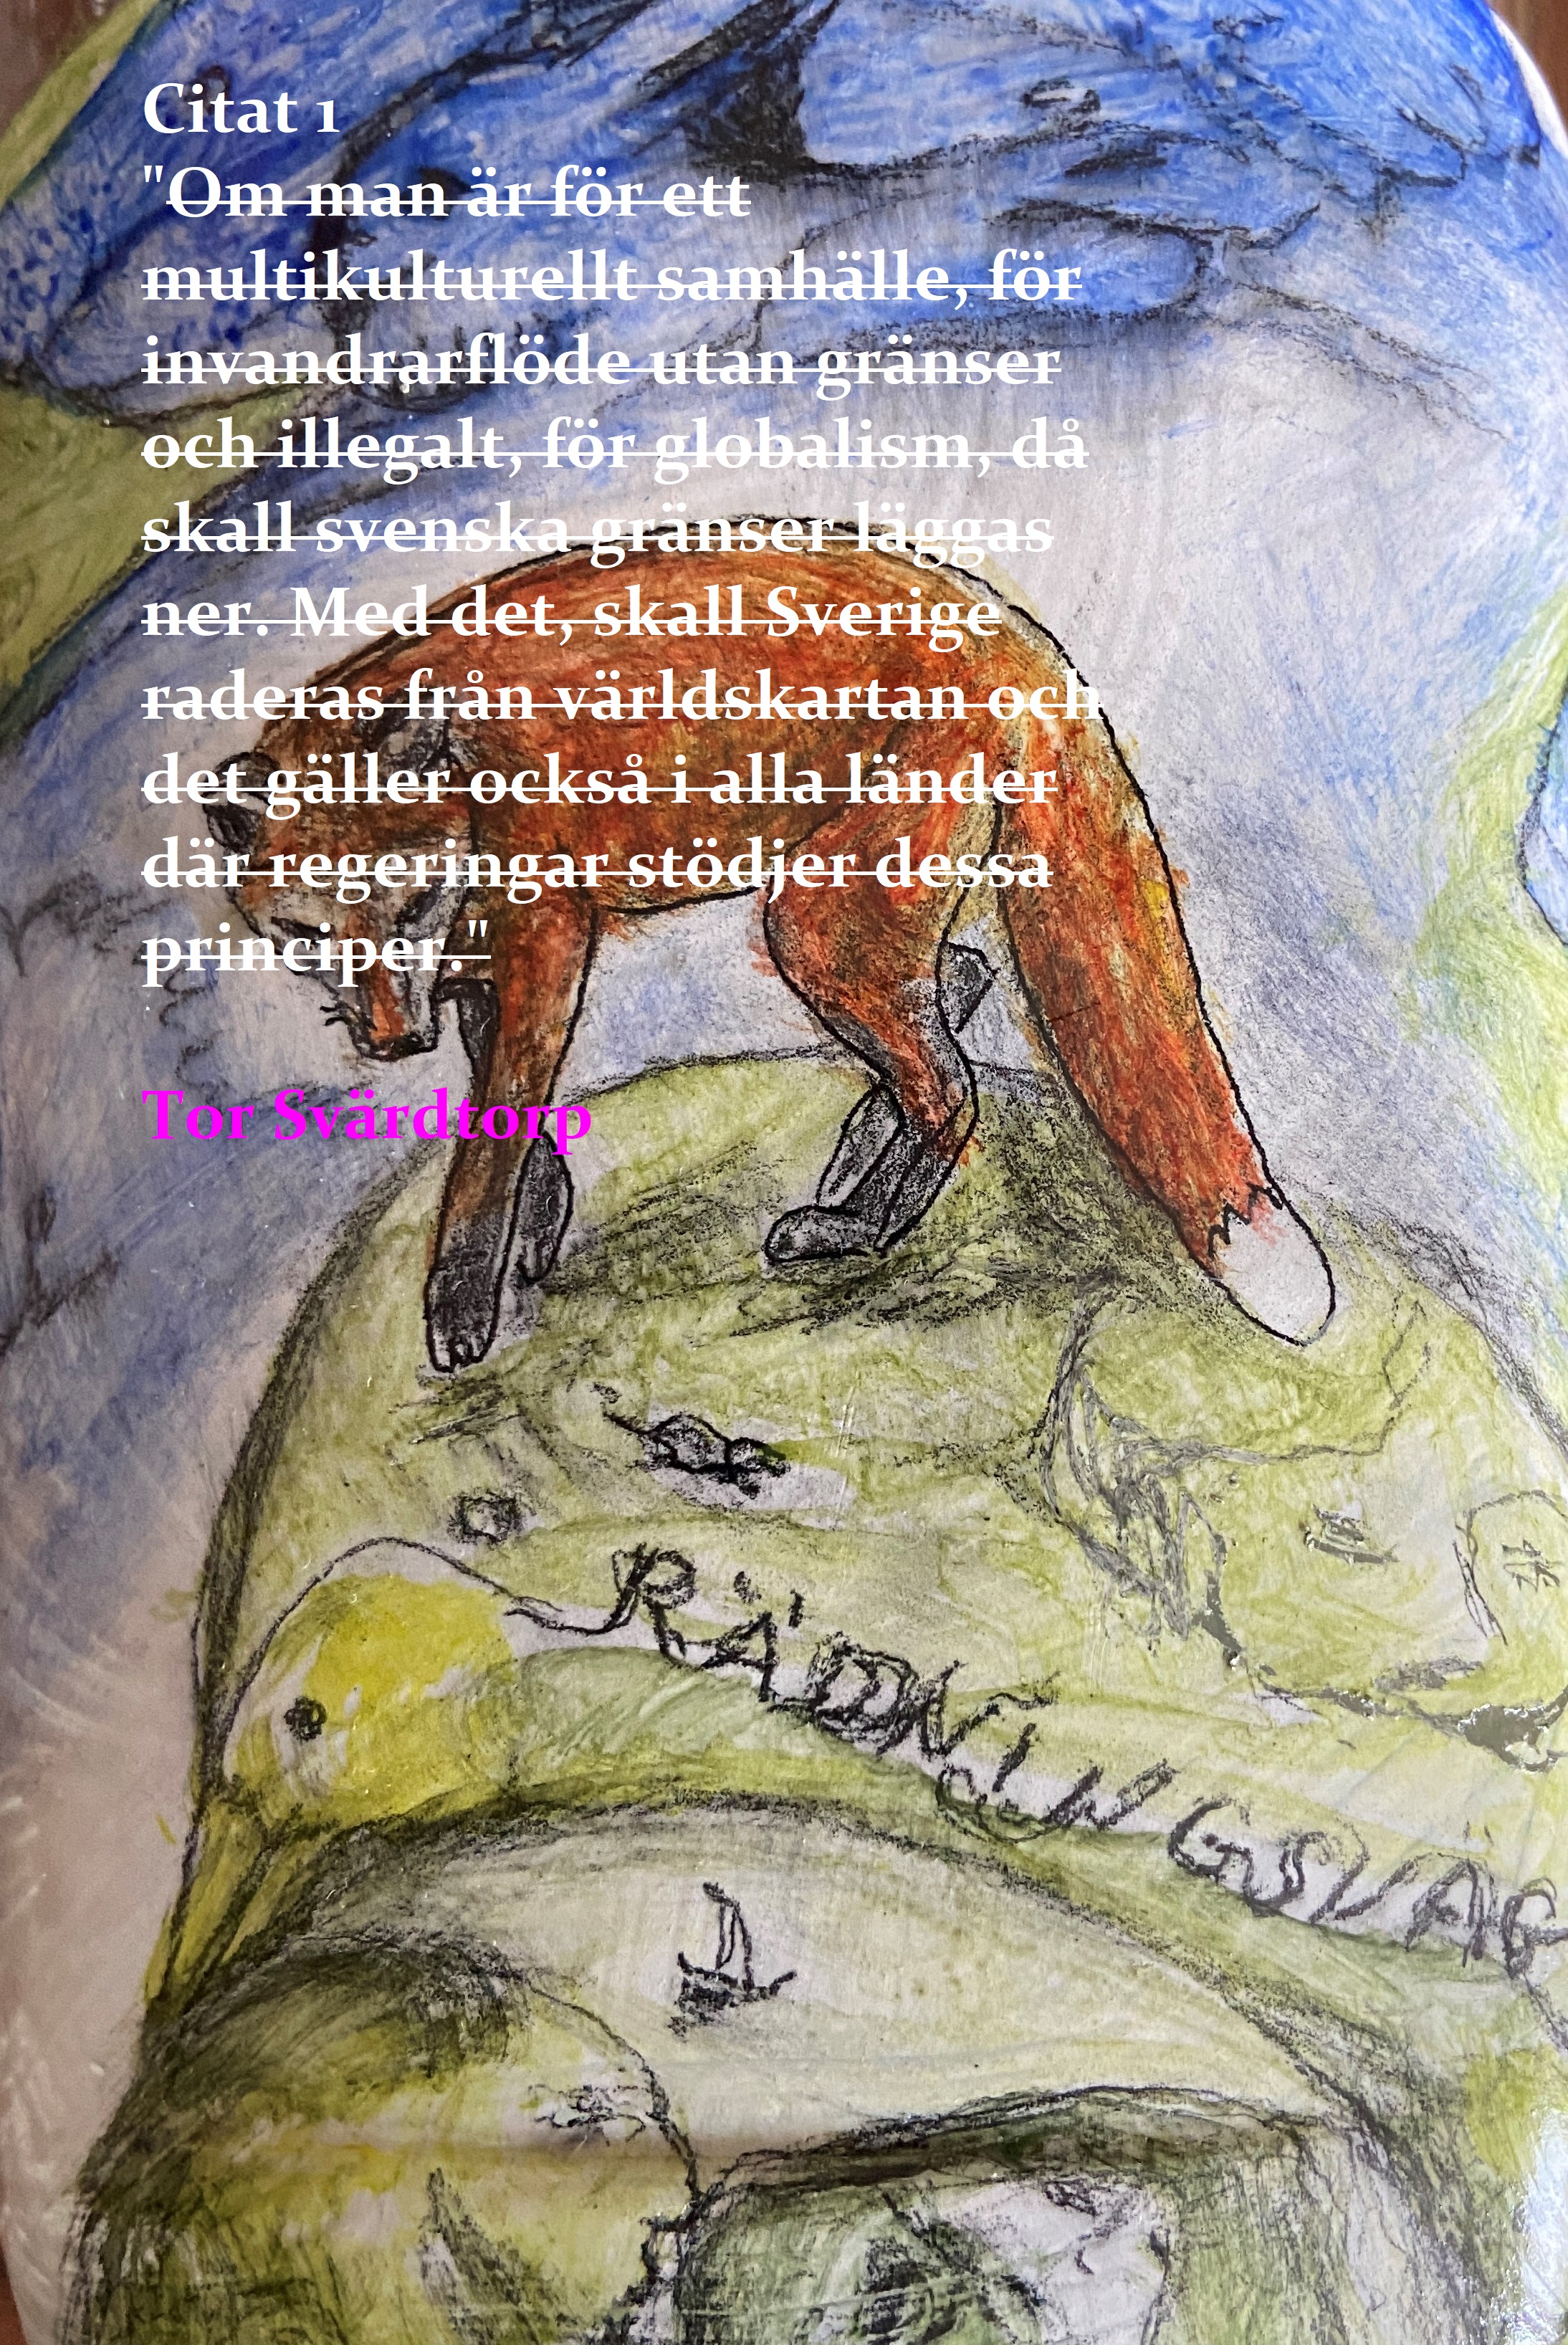 Citat 1
"Om man är för ett
multikulturellt samhälle, för
invandrarflöde utan gränser
och illegalt, för globalism, då
skall svenska gränser läggas
ner. Med det, skall Sverige
raderas från världskartan och
det gäller också i alla länder
där regeringar stödjer dessa
principer."
Tor Svärdtorp
RÄDDNINGSVÄG